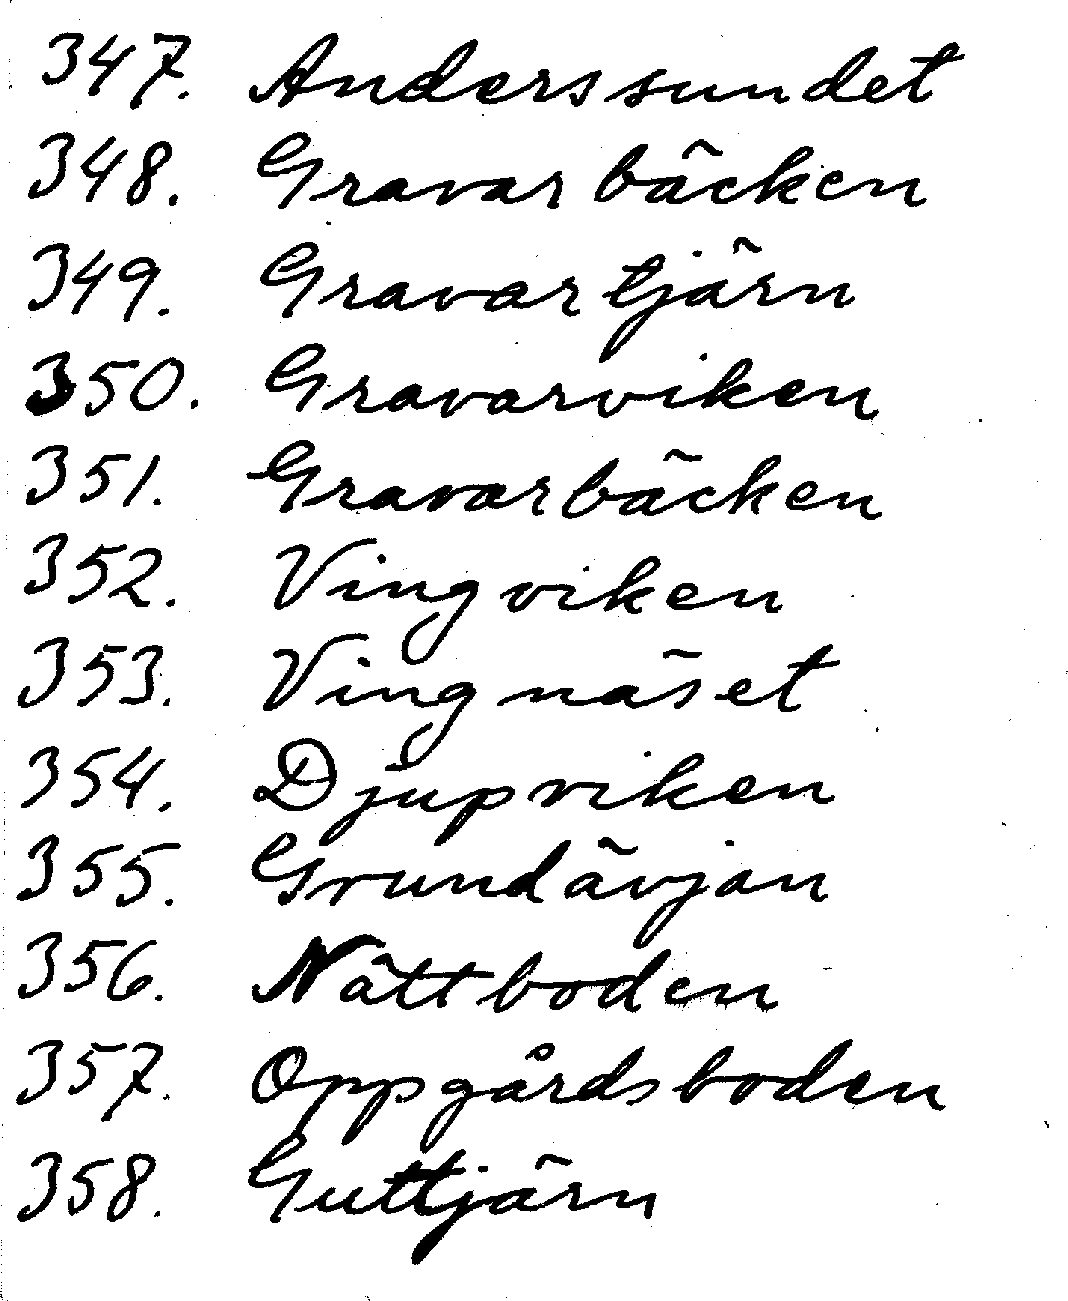 347. Anderssundet
348. Gravarbäcken
349. Gravartjärn
350. Gravarviken
351. Gravarbäcken
352. Vingviken
353. Vingnäset
354. Djupviken
355. Grundävjan
356. Nättboden
357. Oppgårdsboden
358. Guttjärn